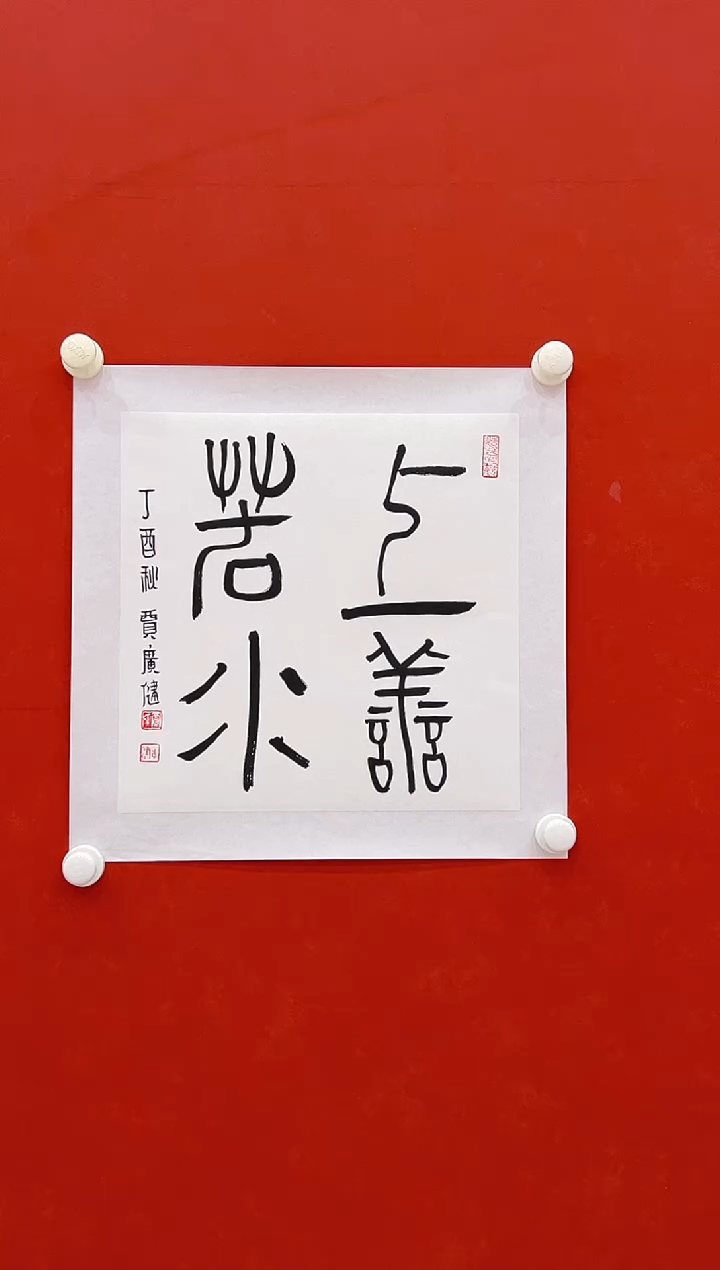 上善
若水
丁酉秋 賈廣健